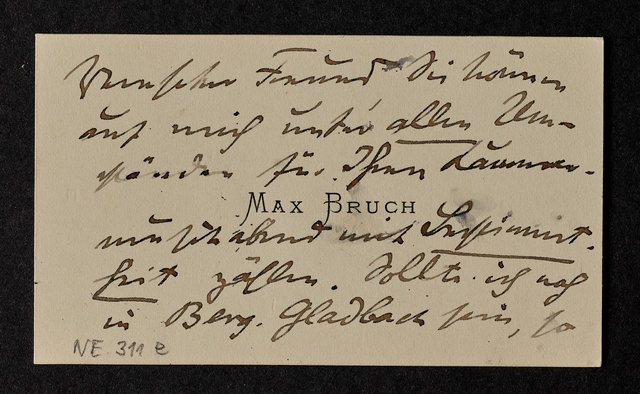 Verehrter Freund Sie können
auf mich unter allen Um-
ständen für Ihren Kammer-
MAX BRUCH
musikabend mit Bestimmt-
heit zählen. Sollte ich noch
in Berg. Gladbach sein, so
NE 311 e